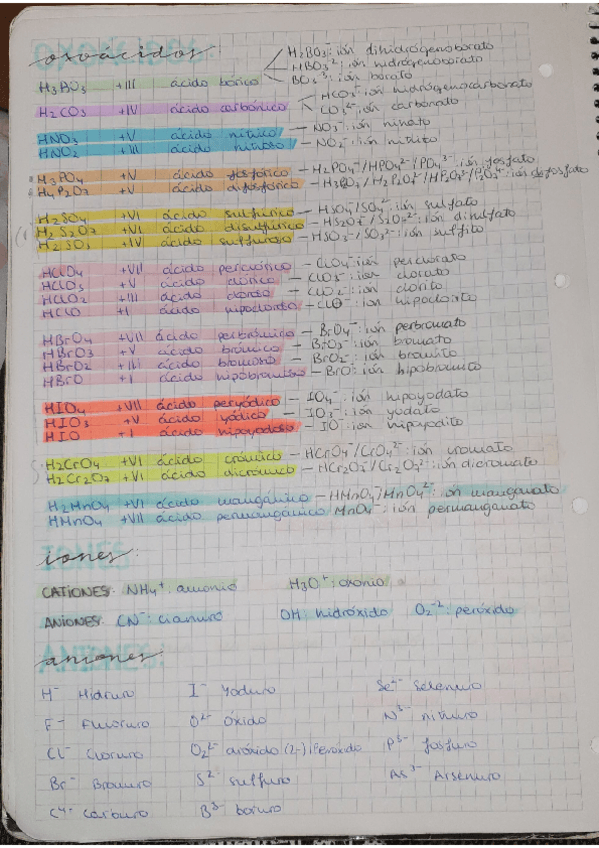 oxoácidos:
H₃BO₃ +III ácido bórico
H₂BO₃⁻: ión dihidrógenoborato
HBO₃²⁻: ión hidrógenoborato
BO₃³⁻: ión borato
H₂CO₃ +IV ácido carbónico
HCO₃⁻: ión hidrógenocarbonato
CO₃²⁻: ión carbonato
HNO₃ +V ácido nítrico — NO₃⁻: ión nitrato
HNO₂ +III ácido nitroso — NO₂⁻: ión nitrito
H₃PO₄ +V ácido fosfórico — H₂PO₄⁻/HPO₄²⁻/PO₄³⁻: ión fosfato
H₄P₂O₇ +V ácido difosfórico — ión difosfato
H₂SO₄ +VI ácido sulfúrico — HSO₄⁻/SO₄²⁻: ión sulfato
H₂S₂O₇ +VI ácido disulfúrico — HS₂O₇⁻/S₂O₇²⁻: ión disulfato
H₂SO₃ +IV ácido sulfuroso — HSO₃⁻/SO₃²⁻: ión sulfito
HClO₄ +VII ácido perclórico — ClO₄⁻: ión perclorato
HClO₃ +V ácido clórico — ClO₃⁻: ión clorato
HClO₂ +III ácido cloroso — ClO₂⁻: ión clorito
HClO +I ácido hipocloroso — ClO⁻: ión hipoclorito
HBrO₄ +VII ácido perbrómico — BrO₄⁻: ión perbromato
HBrO₃ +V ácido brómico — BrO₃⁻: ión bromato
HBrO₂ +III ácido bromoso — BrO₂⁻: ión bromito
HBrO +I ácido hipobromoso — BrO⁻: ión hipobromito
HIO₄ +VII ácido peryódico — IO₄⁻: ión hipoyodato
HIO₃ +V ácido yódico — IO₃⁻: ión yodato
HIO +I ácido hipoyodoso — IO⁻: ión hipoyodito
H₂CrO₄ +VI ácido crómico — HCrO₄⁻/CrO₄²⁻: ión cromato
H₂Cr₂O₇ +VI ácido dicrómico — HCr₂O₇⁻/Cr₂O₇²⁻: ión dicromato
H₂MnO₄ +VI ácido mangánico — HMnO₄⁻/MnO₄²⁻: ión manganato
HMnO₄ +VII ácido permangánico MnO₄⁻: ión permanganato
iones:
CATIONES: NH₄⁺: amonio H₃O⁺: oxonio
ANIONES: CN⁻: cianuro OH⁻: hidróxido O₂⁻²: peróxido
aniones:
H⁻ Hidruro I⁻ Yoduro Se²⁻ Selenuro
F⁻ Fluoruro O²⁻ óxido N³⁻ nitruro
Cl⁻ Cloruro O₂²⁻ dióxido (2-)/peróxido P³⁻ fosfuro
Br⁻ Bromuro S²⁻ sulfuro As³⁻ Arsenuro
C⁴⁻ Carburo B³⁻ boruro